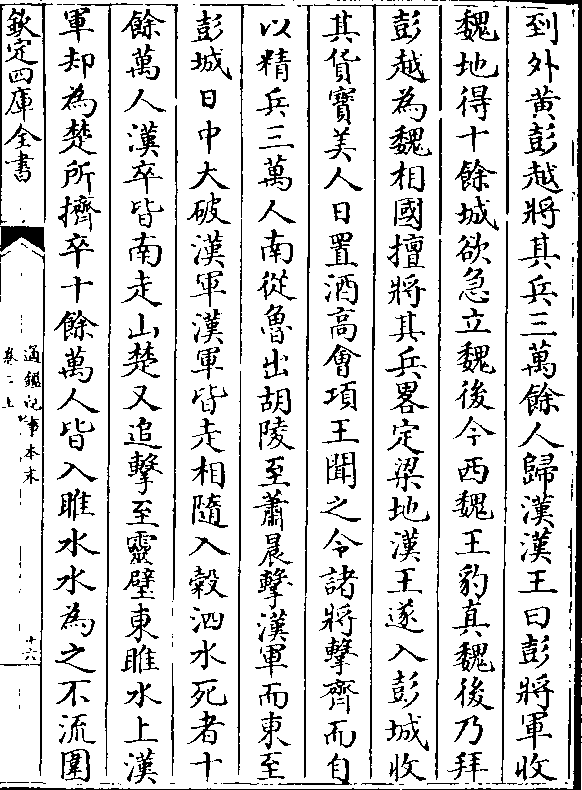 到外黄彭越將其兵三萬餘人歸漢漢王曰彭將軍收
魏地得十餘城欲急立魏後今西魏王豹真魏後乃拜
彭越為魏相國擅將其兵畧定梁地漢王遂入彭城收
其貨寳美人日置酒高會項王聞之令諸將擊齊而自
以精兵三萬人南從魯出胡陵至蕭晨擊漢軍而東至
彭城日中大破漢軍漢軍皆走相隨入穀泗水死者十
餘萬人漢卒皆南走山楚又追擊至靈璧東睢水上漢
軍却為楚所擠卒十餘萬人皆入睢水水為之不流圍
欽定四庫全書
通鑑紀事本末
卷二上
十六